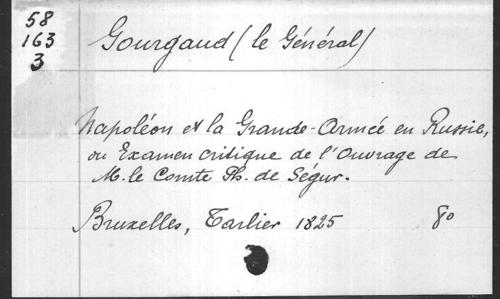 58
163
3
Gourgaud (le Général)
Napoléon et la Grande-Armée en Russie,
ou Examen critique de l'Ouvrage de
M. le Comte Ph. de Ségur.
Bruxelles, Tarlier 1825 8o